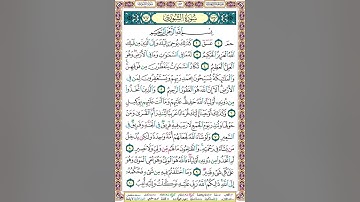 سُورَةُ الشُّورَىٰ
بِسْمِ اللَّهِ الرَّحْمَٰنِ الرَّحِيمِ
حمٓ عٓسٓقٓ كَذَٰلِكَ يُوحِىٓ إِلَيْكَ وَإِلَى ٱلَّذِينَ مِن قَبْلِكَ
ٱللَّهُ ٱلْعَزِيزُ ٱلْحَكِيمُ لَهُۥ مَا فِى ٱلسَّمَٰوَٰتِ وَمَا فِى ٱلْأَرْضِ وَهُوَ
ٱلْعَلِىُّ ٱلْعَظِيمُ تَكَادُ ٱلسَّمَٰوَٰتُ يَتَفَطَّرْنَ مِن فَوْقِهِنَّ
وَٱلْمَلَٰٓئِكَةُ يُسَبِّحُونَ بِحَمْدِ رَبِّهِمْ وَيَسْتَغْفِرُونَ لِمَن فِى
ٱلْأَرْضِ أَلَآ إِنَّ ٱللَّهَ هُوَ ٱلْغَفُورُ ٱلرَّحِيمُ وَٱلَّذِينَ ٱتَّخَذُوا۟
مِن دُونِهِۦٓ أَوْلِيَآءَ ٱللَّهُ حَفِيظٌ عَلَيْهِمْ وَمَآ أَنتَ عَلَيْهِم بِوَكِيلٍ
وَكَذَٰلِكَ أَوْحَيْنَآ إِلَيْكَ قُرْءَانًا عَرَبِيًّا لِّتُنذِرَ أُمَّ ٱلْقُرَىٰ وَمَنْ
حَوْلَهَا وَتُنذِرَ يَوْمَ ٱلْجَمْعِ لَا رَيْبَ فِيهِ فَرِيقٌ فِى ٱلْجَنَّةِ وَفَرِيقٌ فِى
ٱلسَّعِيرِ وَلَوْ شَآءَ ٱللَّهُ لَجَعَلَهُمْ أُمَّةً وَٰحِدَةً وَلَٰكِن يُدْخِلُ
مَن يَشَآءُ فِى رَحْمَتِهِۦ وَٱلظَّٰلِمُونَ مَا لَهُم مِّن وَلِىٍّ وَلَا نَصِيرٍ
أَمِ ٱتَّخَذُوا۟ مِن دُونِهِۦٓ أَوْلِيَآءَ فَٱللَّهُ هُوَ ٱلْوَلِىُّ وَهُوَ يُحْىِ ٱلْمَوْتَىٰ وَهُوَ
عَلَىٰ كُلِّ شَىْءٍ قَدِيرٌ وَمَا ٱخْتَلَفْتُمْ فِيهِ مِن شَىْءٍ فَحُكْمُهُۥٓ
إِلَى ٱللَّهِ ذَٰلِكُمُ ٱللَّهُ رَبِّى عَلَيْهِ تَوَكَّلْتُ وَإِلَيْهِ أُنِيبُ